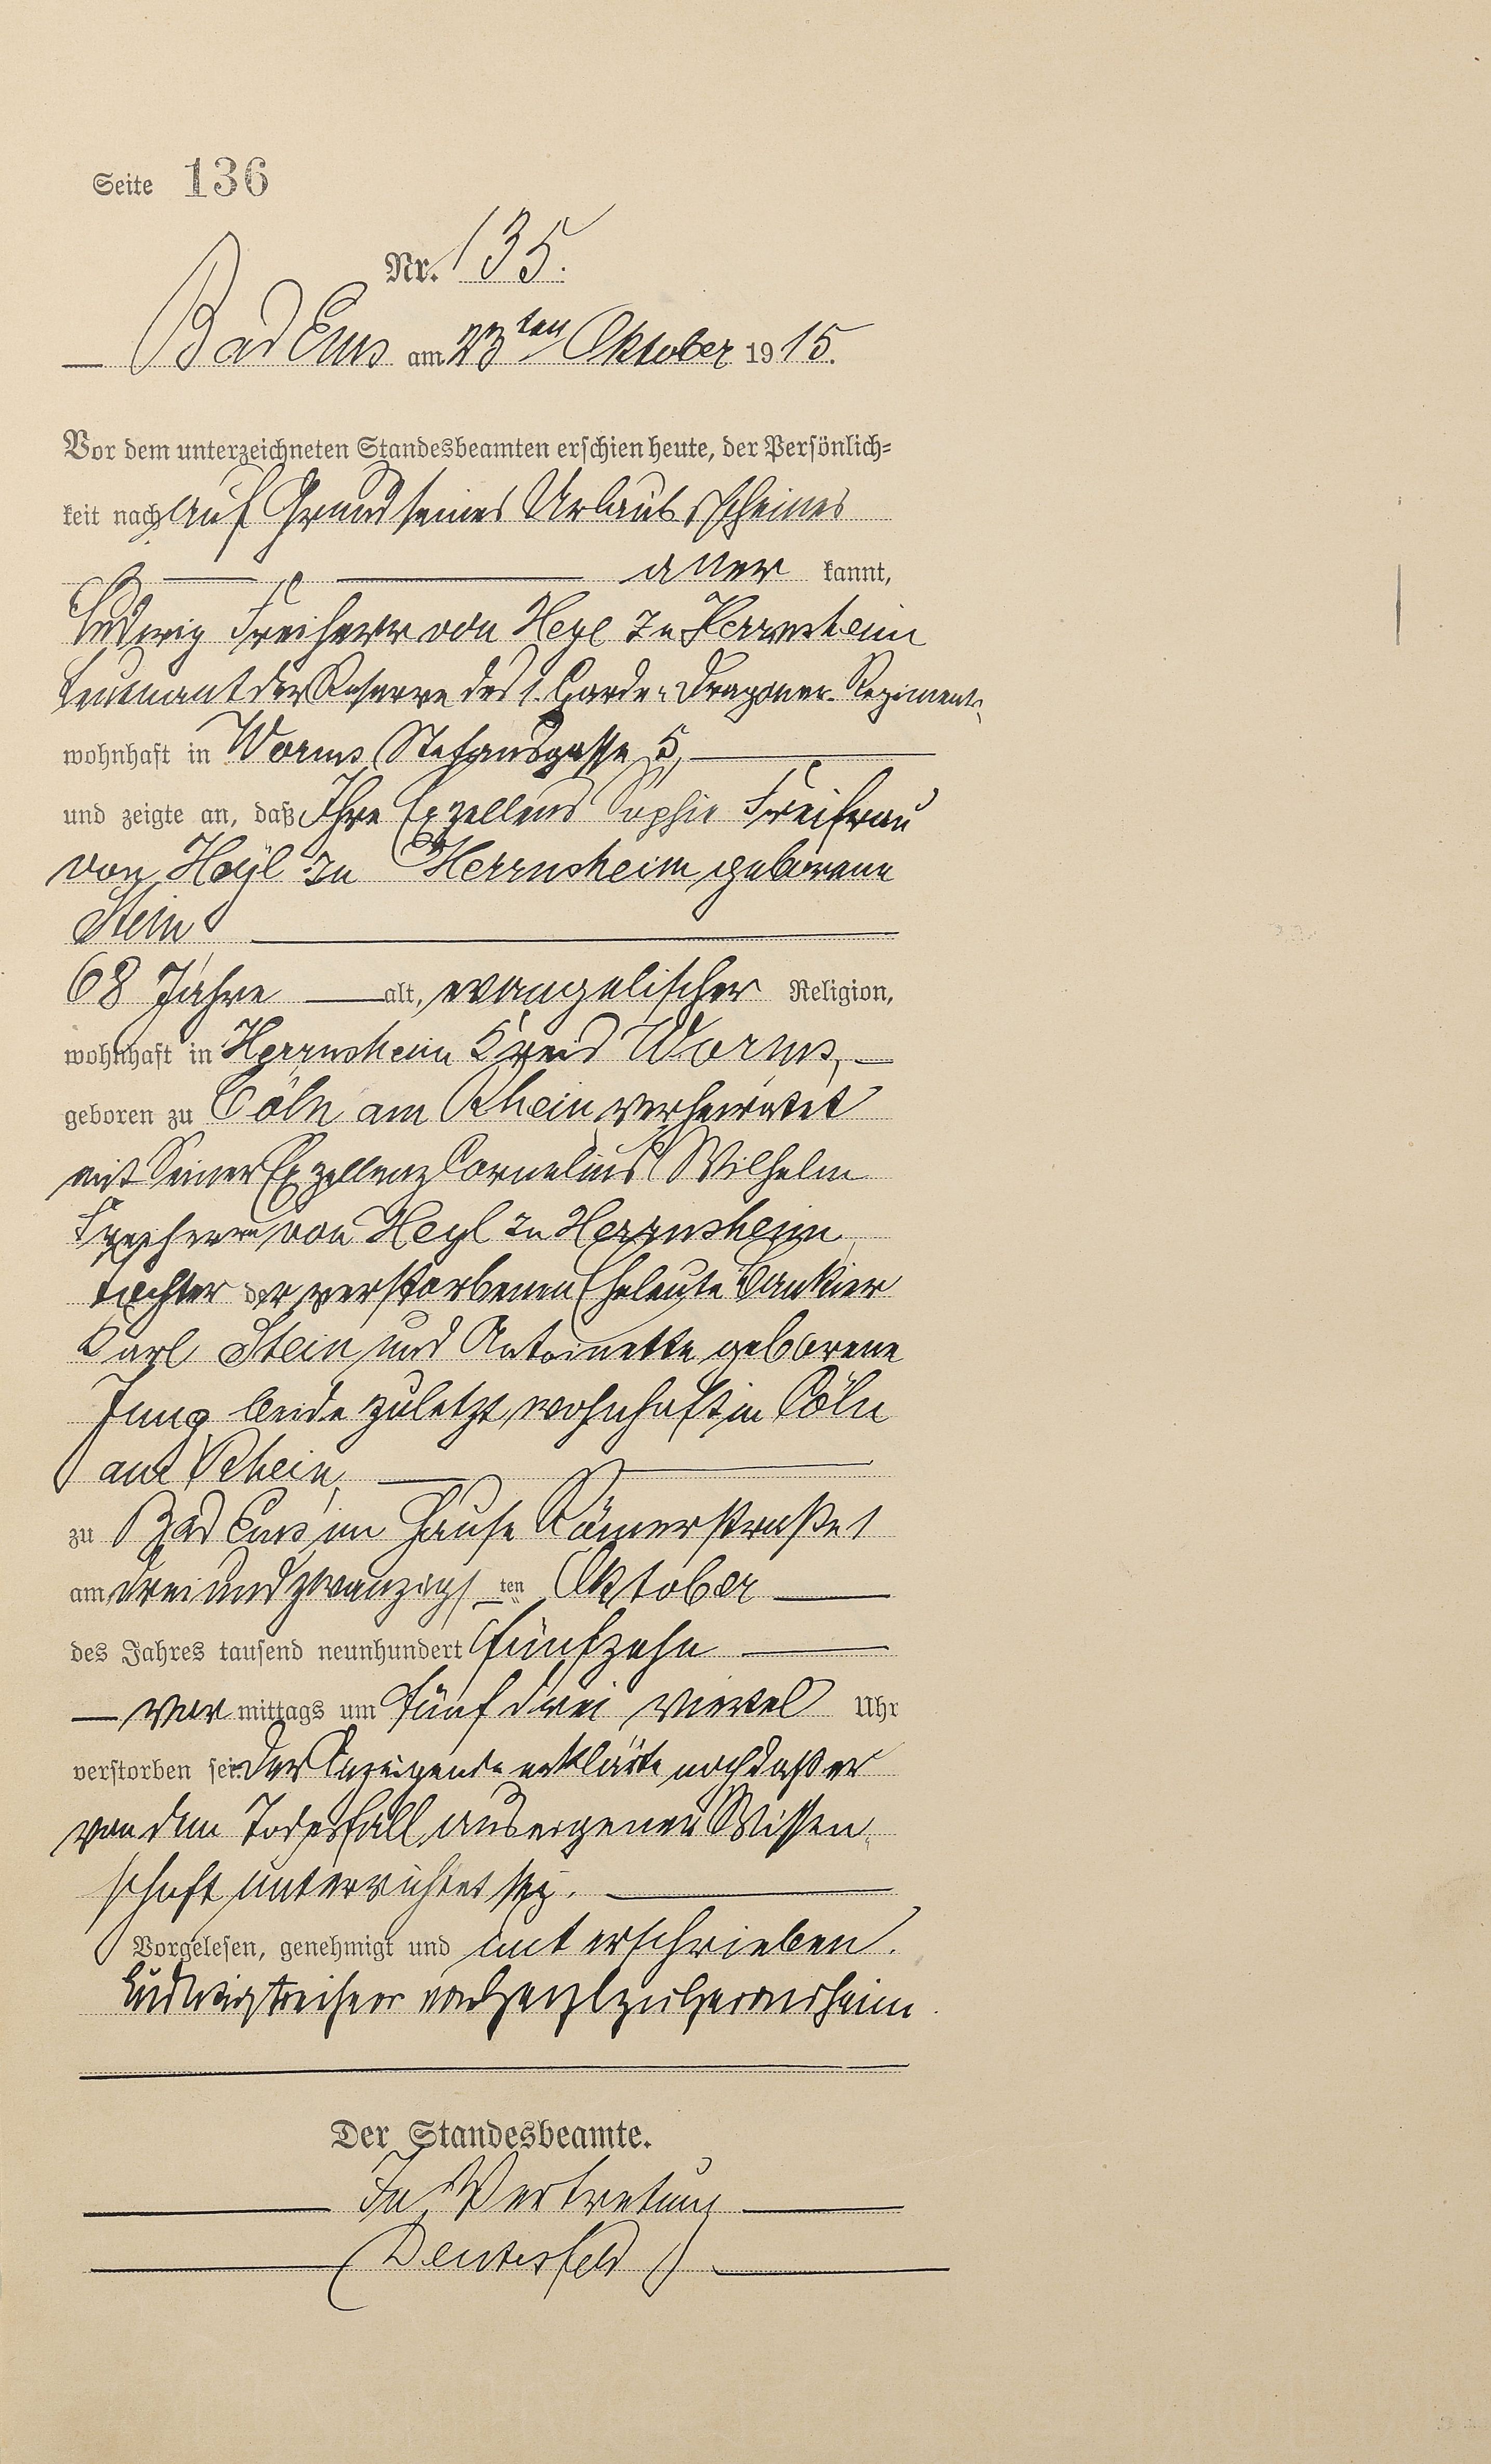 Seite 136
Nr. 135.
Bad Ems am 23ten Oktober 1915.
Vor dem unterzeichneten Standesbeamten erschien heute, der Persönlich-
keit nach auf Grund seines Urlaubsscheines
aner kannt,
Ludwig Freiherr von Heyl zu Herrnsheim
Leutnant der Reserve des 1. Garde-Dragoner-Regiments,
wohnhaft in Worms, Stefansgasse 5,
und zeigte an, daß Ihre Exzellenz Sophie Freifrau
von Heyl zu Herrnsheim geborene
Stein
68 Jahre alt, evangelischer Religion,
wohnhaft in Herrnsheim Kreis Worms,
geboren zu Cöln am Rhein, verheiratet
mit Seiner Exzellenz Cornelius Wilhelm
Freiherrn von Heyl zu Herrnsheim,
Tochter der verstorbenen Eheleute Bankier
Karl Stein und Antoinette geborene
Jung beide zuletzt wohnhaft in Cöln
am Rhein,
zu Bad Ems im Hause Römerstraße 1
am dreiundzwanzigsten Oktober
des Jahres tausend neunhundert fünfzehn
vor mittags um fünf drei viertel Uhr
verstorben sei. Der Anzeigende erklärte noch daß er
von dem Todesfall aus eigener Wissen-
schaft unterrichtet sei.
Vorgelesen, genehmigt und unterschrieben.
Ludwig Freiherr von Heyl zu Herrnsheim.
Der Standesbeamte.
In Vertretung